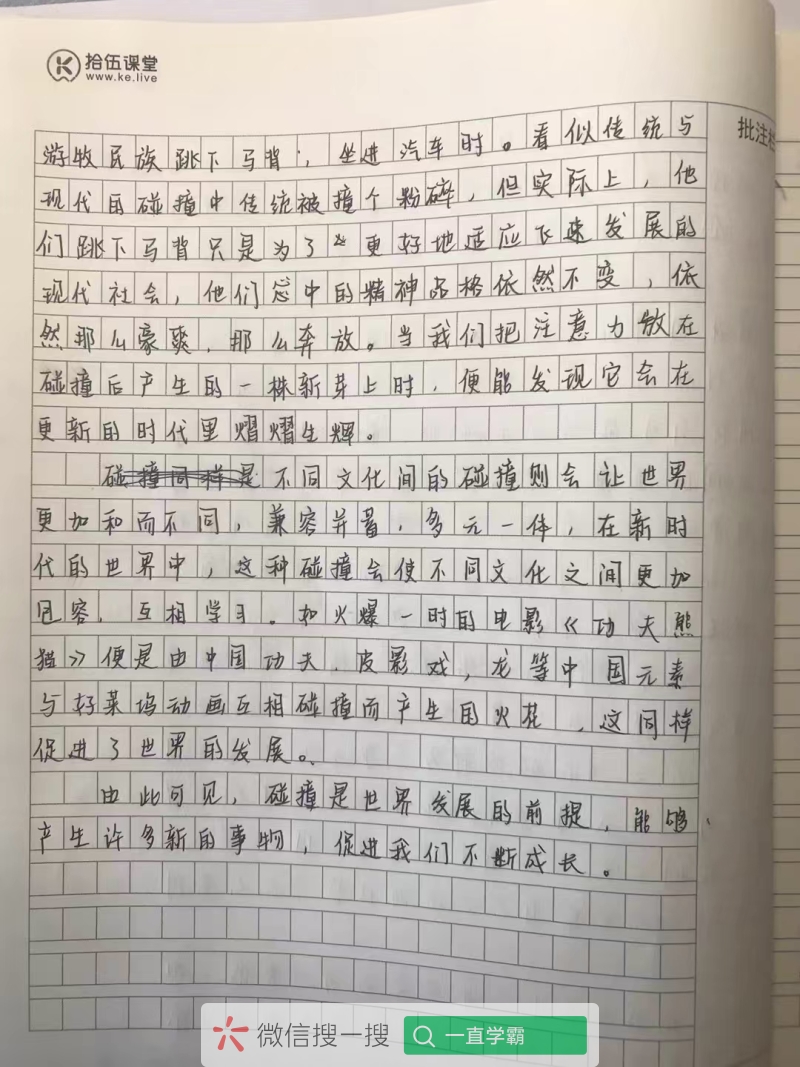 拾伍课堂
www.ke.live
批注栏
游牧民族跳下马背，坐进汽车时。看似传统与
现代的碰撞中传统被撞个粉碎，但实际上，他
们跳下马背只是为了更好地适应飞速发展的
现代社会，他们心中的精神品格依然不变，依
然那么豪爽，那么奔放。当我们把注意力放在
碰撞后产生的一株新芽上时，便能发现它会在
更新的时代里熠熠生辉。
不同文化间的碰撞则会让世界
更加和而不同，兼容并蓄，多元一体，在新时
代的世界中，这种碰撞会使不同文化之间更加
包容，互相学习。如火爆一时的电影《功夫熊
猫》便是由中国功夫，皮影戏，龙等中国元素
与好莱坞动画互相碰撞而产生的火花，这同样
促进了世界的发展。
由此可见，碰撞是世界发展的前提，能够
产生许多新的事物，促进我们不断成长。
微信搜一搜
一直学霸